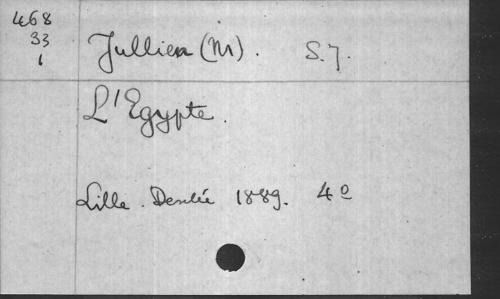 468
33
1
Jullien (M). S.J.
L'Egypte.
Lille. Desclée 1889. 4º